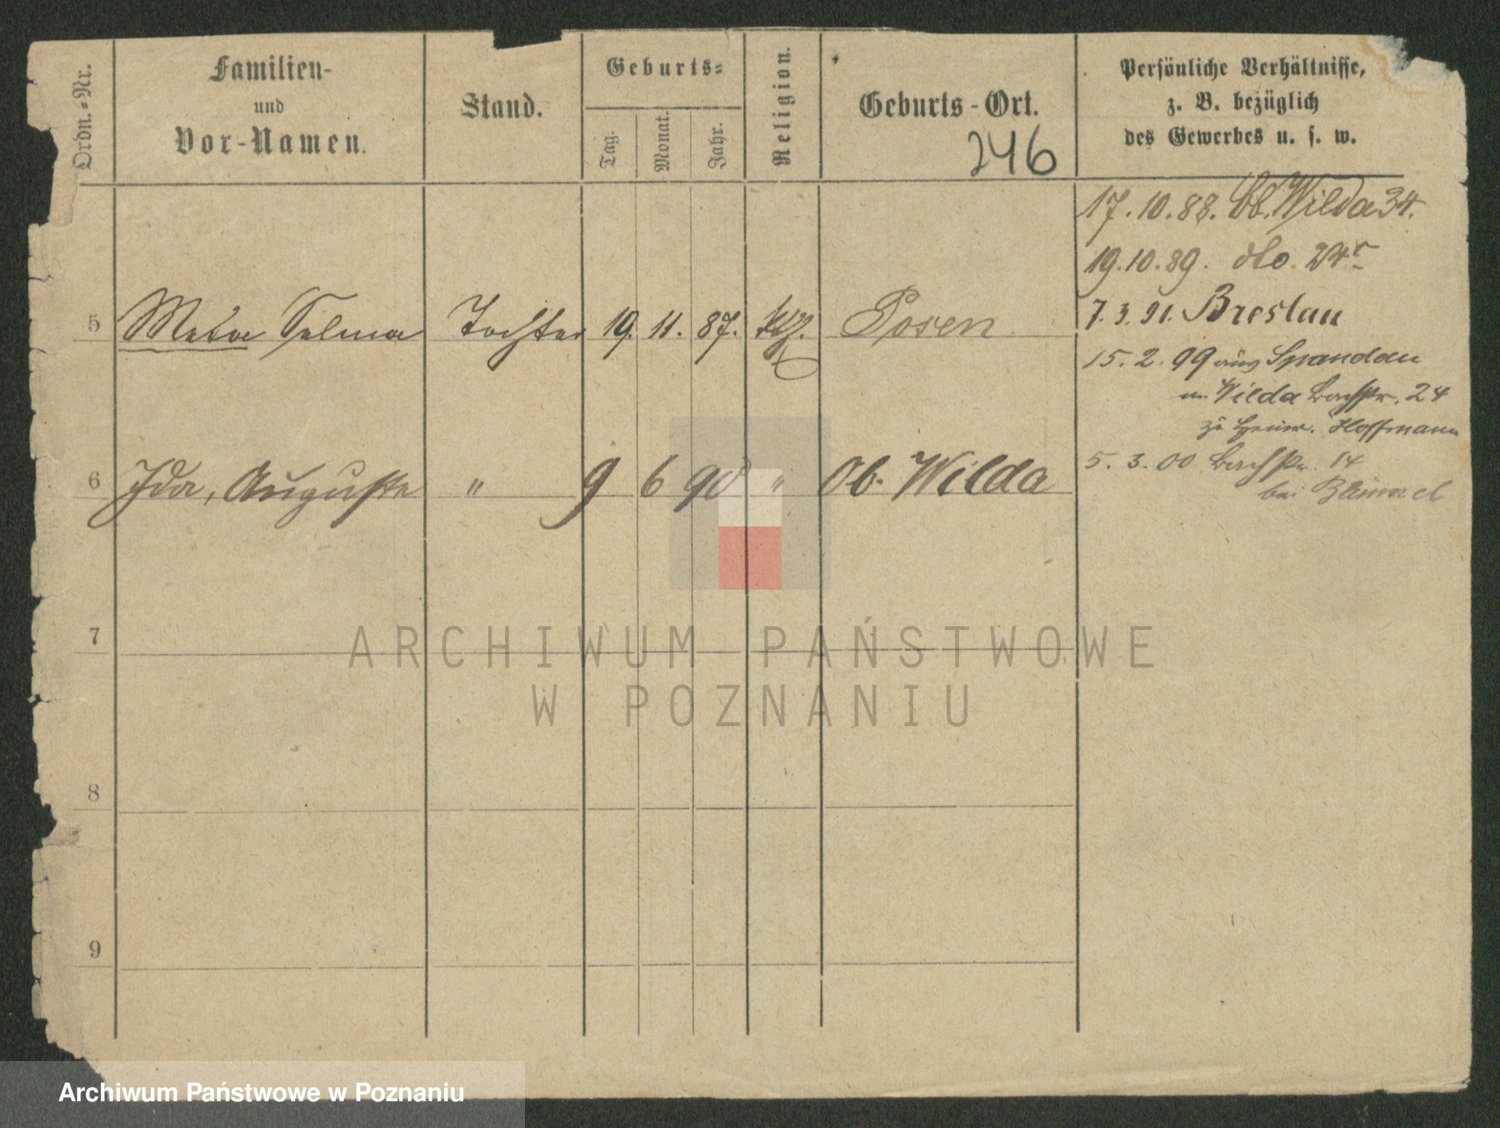 Ordn.=Nr.
Familien-
und
Vor-Namen.
Stand.
Geburts=
Tag.
Monat.
Jahr.
Religion.
Geburts-Ort.
246
Persönliche Verhältnisse,
z. B. bezüglich
des Gewerbes u. s. w.
17.10.88. Ob. Wilda 34.
19.10.89. dto. 24
7.3.91. Breslau
5 Meta Selma Tochter 19. 11. 87. kth. Posen
15.2.99 aus Spandau
n. Wilda Bachstr. 24
zu Hoffmann
6 Ida, Auguste " 9 6 90 " Ob. Wilda
5.3.00 Bachstr. 14
bei
7
8
9
ARCHIWUM PAŃSTWOWE
W POZNANIU
Archiwum Państwowe w Poznaniu